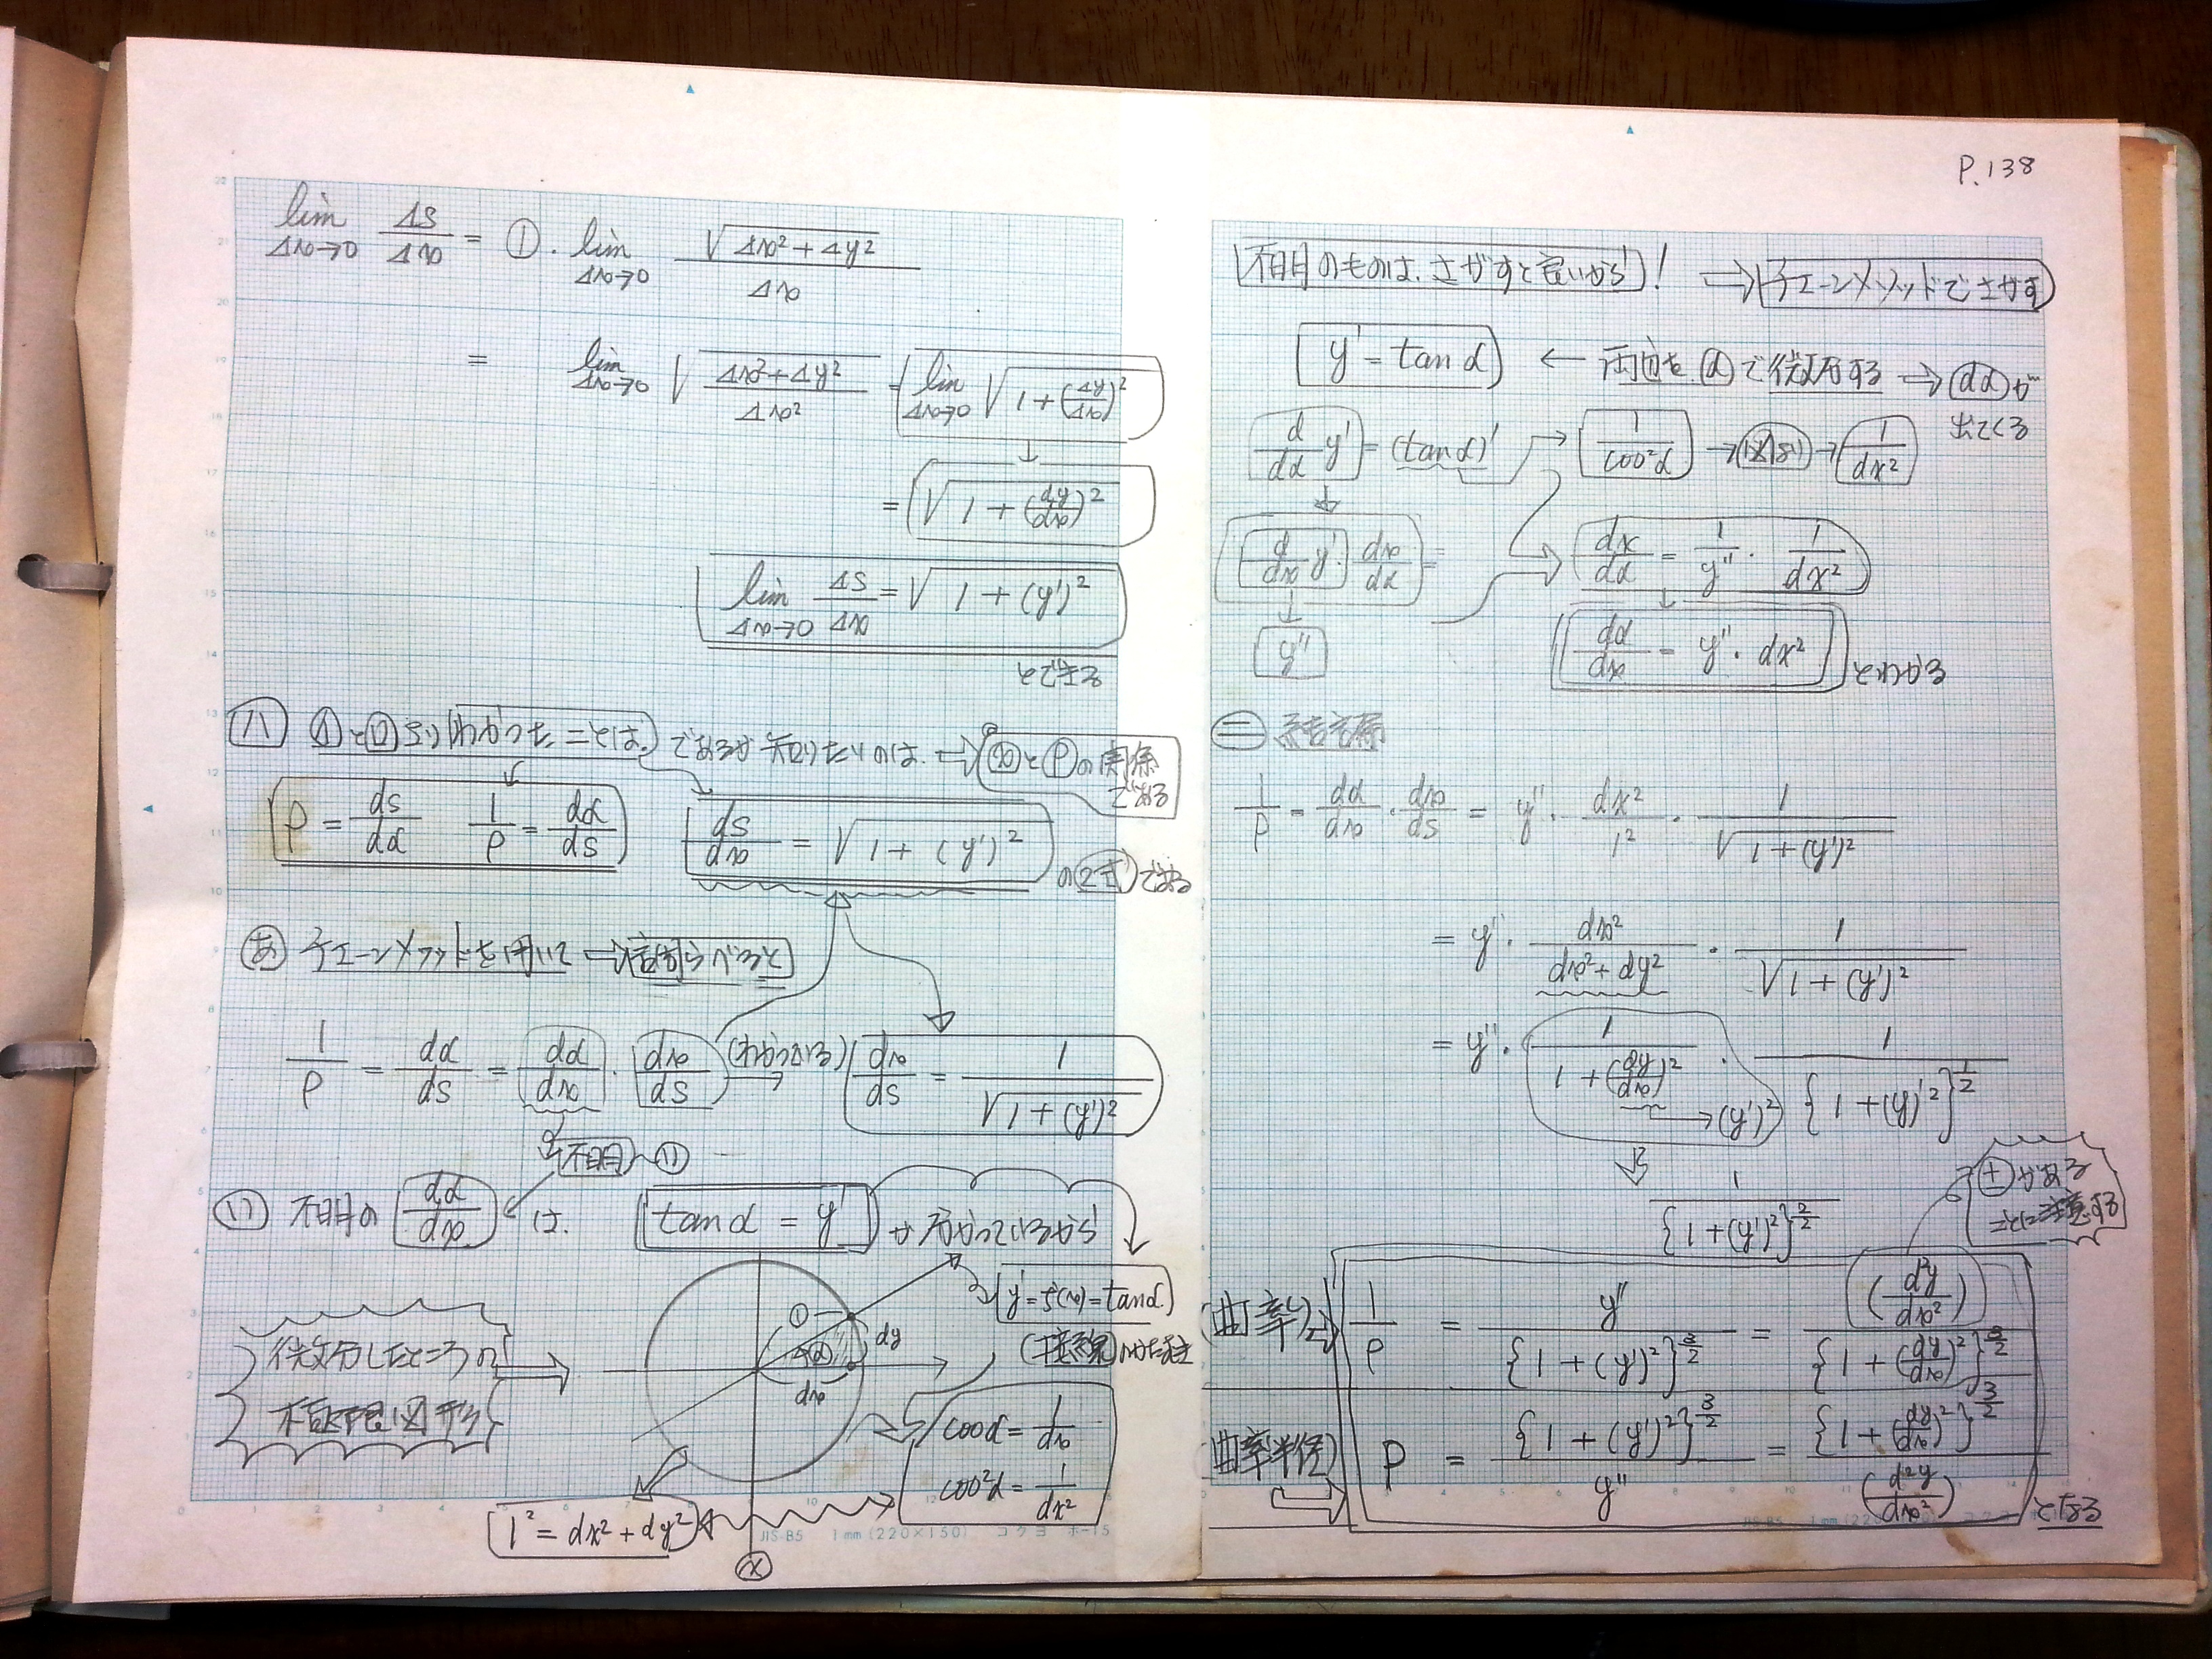 lim Δx→0 ΔS/Δx = ①・lim Δx→0 √(Δx²+Δy²)/Δx
= lim Δx→0 √((Δx²+Δy²)/Δx²) = lim Δx→0 √(1+(Δy/Δx)²)
↓
= √(1+(dy/dx)²)
lim Δx→0 ΔS/Δx = √(1+(y')²)
(ハ) イとロよりわかったことは、であるが知りたいのは、→ xとρの関係である
ρ = ds/dα 1/ρ = dα/ds ds/dx = √(1+(y')²) の2式である
あ チェーンメソッドを用いて→
1/ρ = dα/ds = dα/dx・dx/ds (わかっている)→ dx/ds = 1/√(1+(y')²)
不明→い
い 不明の dα/dx は、 tanα = y' が分かっているから
y'=f(x)=tanα
微分したところの
極限図形
① α dy
dx
cosα = 1/dx
cos²α = 1/dx²
1² = dx²+dy²
x
JIS-B5 1mm(220×150) コクヨ ホ-15
P.138
不明のものは、さがすと良いから! ⇒ チェーンメソッドでさがす
y' = tanα ← 両辺を α で微分する → dα が
出てくる
d/dα y' = (tanα)' → 1/cos²α → → 1/dx²
↓
d/dx y'・dx/dα = dx/dα = 1/y''・1/dx²
↓
y''
dα/dx = y''・dx²
ニ 結言
1/ρ = dα/dx・dx/ds = y''・dx²/1²・1/√(1+(y')²)
= y''・dx²/(dx²+dy²)・1/√(1+(y')²)
= y''・1/(1+(dy/dx)²)・1/{1+(y')²}^(1/2)
→(y')²
1/{1+(y')²}^(2/2)
±がある
ことに注意する
(曲率)⇒ 1/ρ = y''/{1+(y')²}^(3/2) = (d²y/dx²)/{1+(dy/dx)²}^(3/2)
(曲率半径) ρ = {1+(y')²}^(3/2)/y'' = {1+(dy/dx)²}^(3/2)/(d²y/dx²)
となる